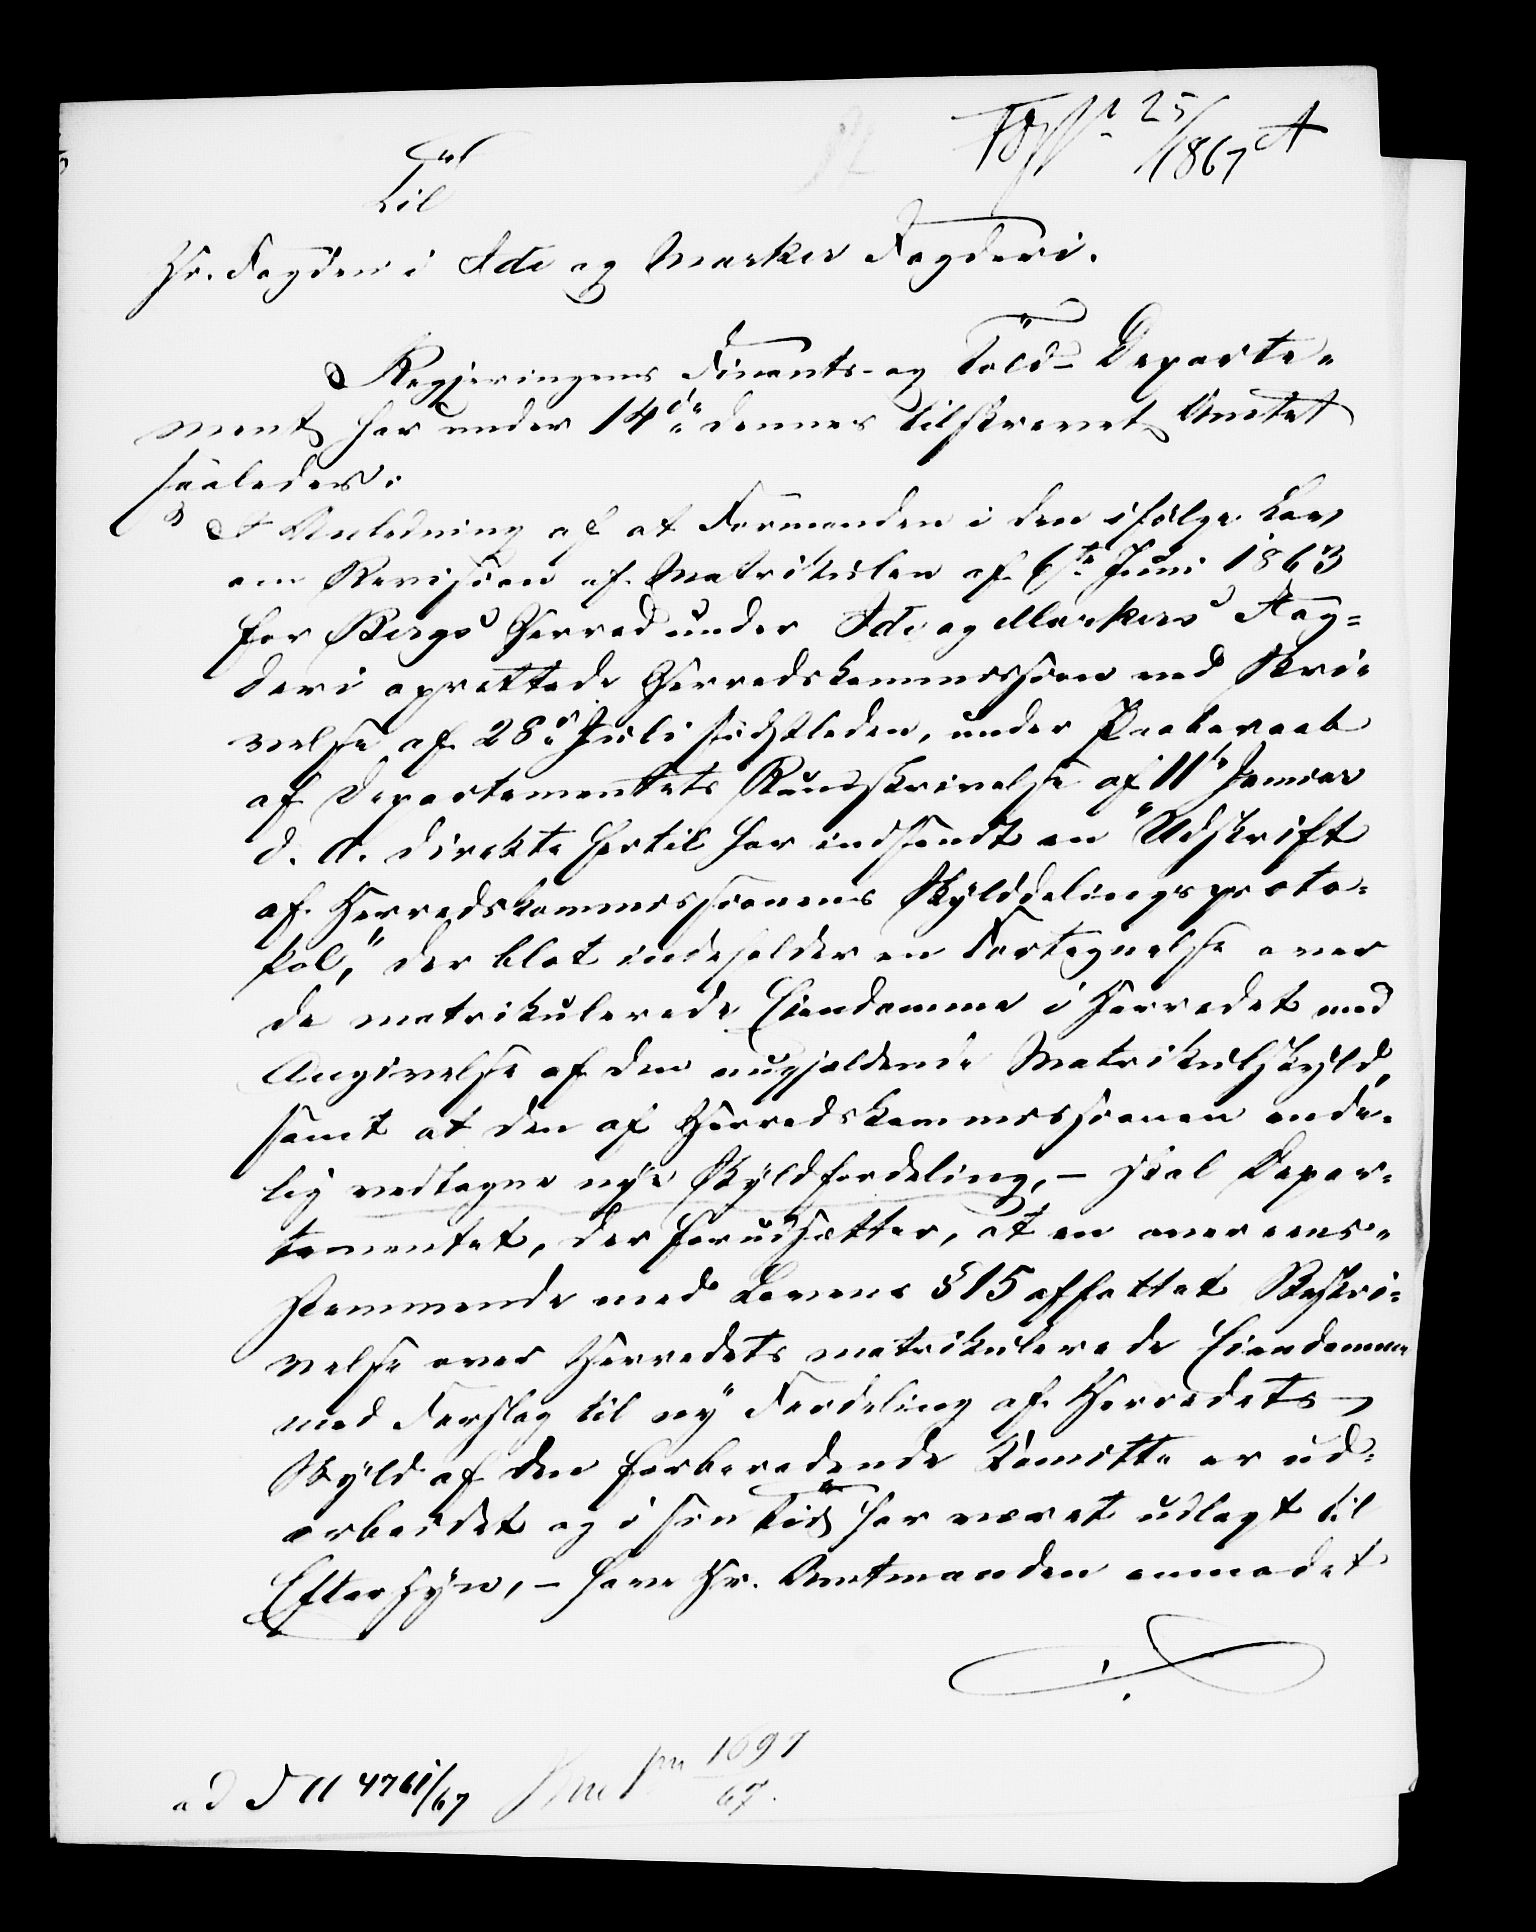 25/1867 A
Til
Hr. Fogden i Ide og Marker Fogderi.
Regjeringens Finants- og Told-Departe-
ment har under 14de dennes tilskrevet Amtet
saaledes:
"I Anledning af at Formanden i den ifølge Lov
om Revision af Matrikulen af 6te Juni 1863
for Bergs Herred under Ide og Markers Fog=
deri oprettede Herredskommission ved Skri-
velse af 28de Juli sidstleden, under Paaberaab
af Departementets Rundskrivelse af 11te Januar
d. A. direkte hertil har indsendt en "Udskrift
af Herredskommissionens Skylddelingsproto-
kol," der blot indeholder en Fortegnelse over
de matrikulerede Eiendomme i Herredet med
Angivelse af den nugjældende Matrikulskyld,
samt at den af Herredskommissionen ende-
lig vedtagne nye Skyldfordeling, - skal Depar-
tementet, der forudsætter, at en overeens-
stemmende med Lovens § 15 affattet Beskri-
velse over Herredets matrikulerede Eiendomme
med Forslag til ny Fordeling af Herredets
Skyld af den forberedende Komitte er ud-
arbeidet og i sin Tid har været udlagt til
Eftersyn, - have Hr. Amtmanden anmodet
ad F II 4761/67 1697/67.